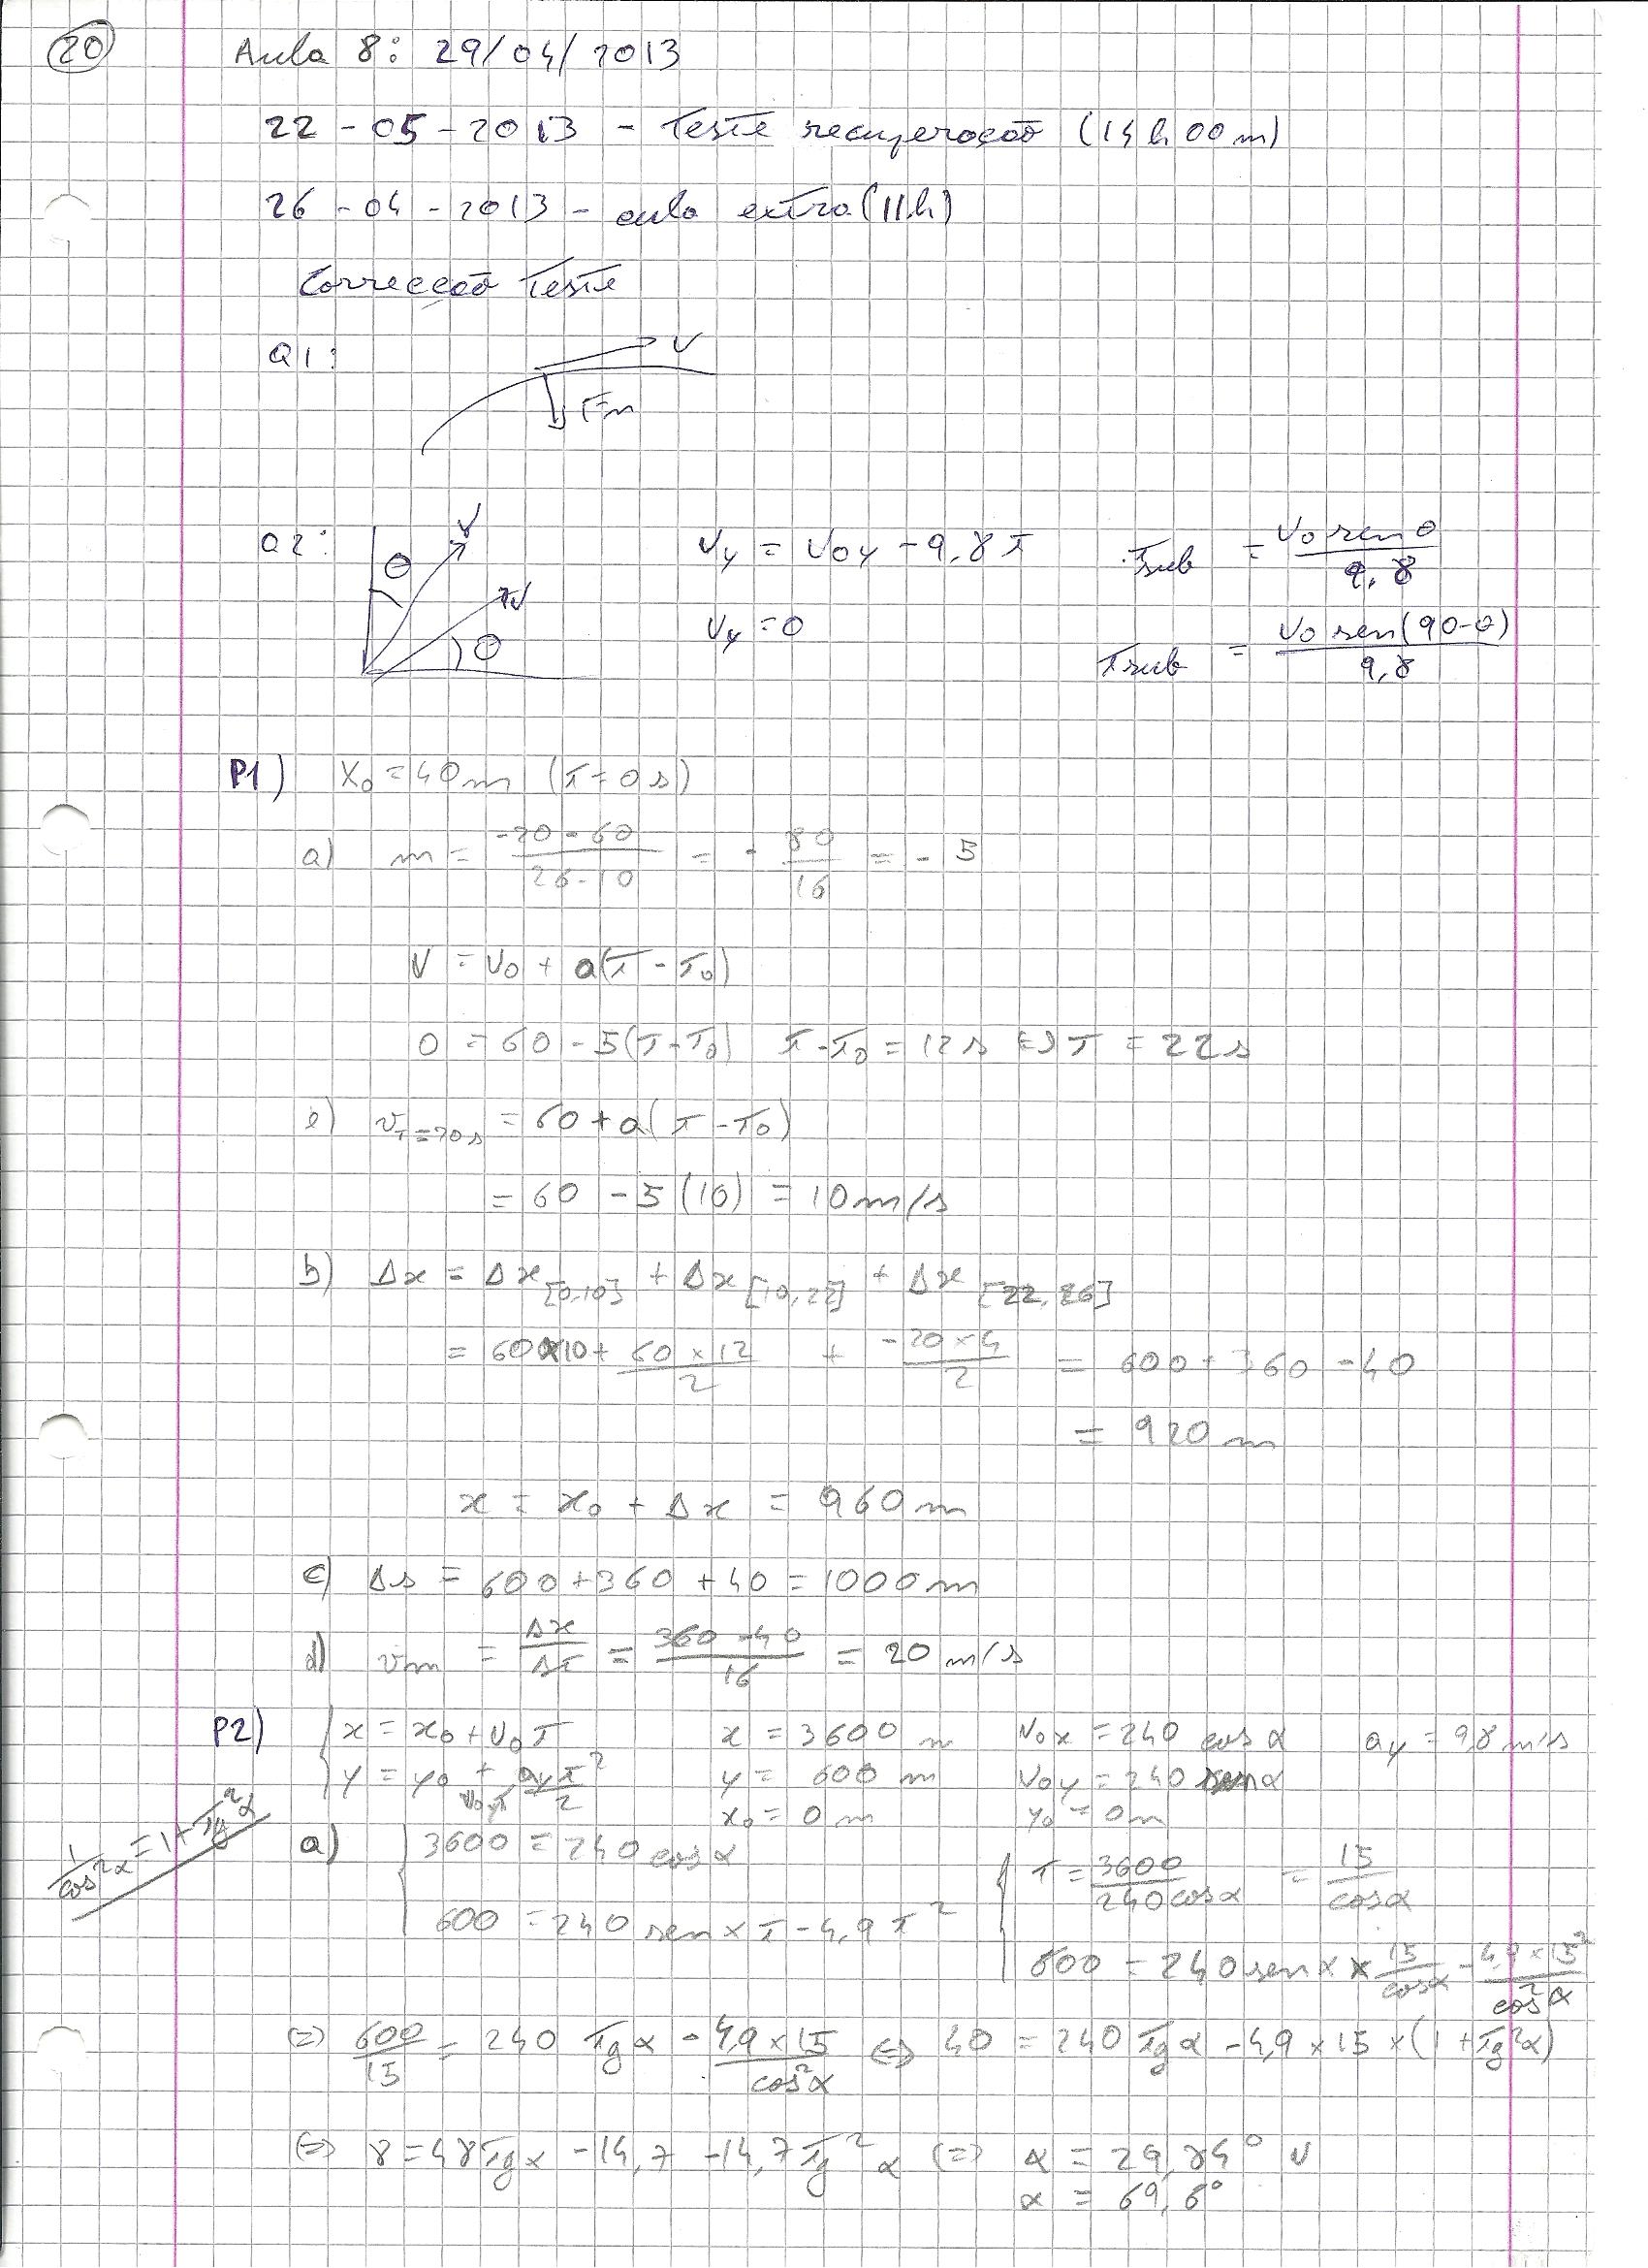 20
Aula 8: 29/04/2013
22-05-2013 - Teste recuperação (14h00m)
26-04-2013 - aula extra (11h)
Correcção Teste
Q1:
v
Fm
Q2:
v
θ
v
θ
vy = voy - 9,8t   tsub = vo sen θ / 9,8
vy = 0   tsub = vo sen(90-θ) / 9,8
P1) x₀ = 40m (t=0s)
a) m = (-20-60)/(26-10) = -80/16 = -5
v = v₀ + a(t-t₀)
0 = 60 - 5(t-t₀)   t-t₀ = 12s ⇔ t = 22s
e) v_{t=20s} = 60 + a(t-t₀)
= 60 - 5(10) = 10m/s
b) Δx = Δx[0,10] + Δx[10,22] + Δx[22,26]
= 60×10 + (60×12)/2 + (-20×4)/2 = 600 + 360 - 40
= 920 m
x = x₀ + Δx = 960 m
c) Δs = 600 + 360 + 40 = 1000m
d) vm = Δx/Δt = (360-40)/16 = 20 m/s
P2) x = x₀ + v₀t   x = 3600 m   v₀x = 240 cos α   ay = 9,8 m/s
y = y₀ + v₀yt ayt²/2   y = 600 m   v₀y = 240 sen α
x₀ = 0 m   y₀ = 0m
1/cos²α = 1 + tg²α
a) 3600 = 240 cos α   t = 3600/(240 cos α) = 15/cos α
600 = 240 sen × t - 4,9t²   600 = 240 sen α × 15/cos α - 4,9×15²/cos²α
⇔ 600/15 = 240 tg α - 4,9×15/cos²α ⇔ 40 = 240 tg α - 4,9×15×(1+tg²α)
⇔ 8 = 48 tg α - 14,7 - 14,7 tg²α ⇔ α = 29,84° ∨
α = 69,6°